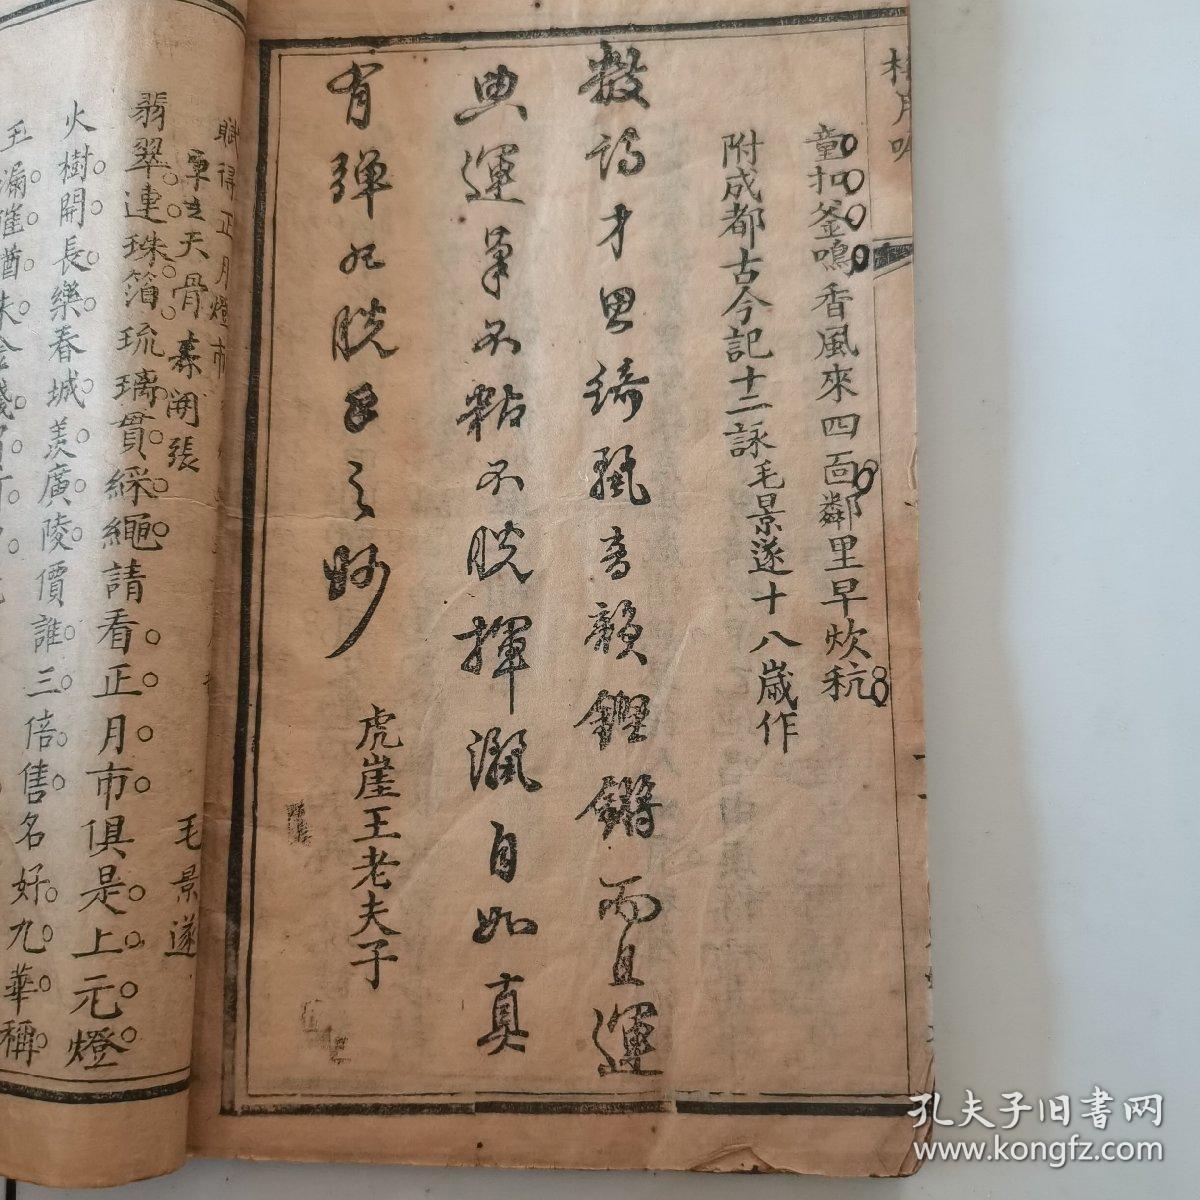 童扣釜鳴香風來四面鄰里早炊秔
附成都古今記十二詠毛景遂十八歲作
數詩才思綺麗音韻鏗鏘而且運
典運筆不粘不脫揮灑自如真
有彈丸脫手之妙
虎崖王老夫子
賦得正月燈市
覃土天骨森開張
毛景遂
翡翠連珠箔琉璃貫綵繩請看正月市俱是上元燈
火樹開長樂春城羨廣陵價誰三倍售名好九華稱
玉漏催
孔夫子旧書网
www.kongfz.com